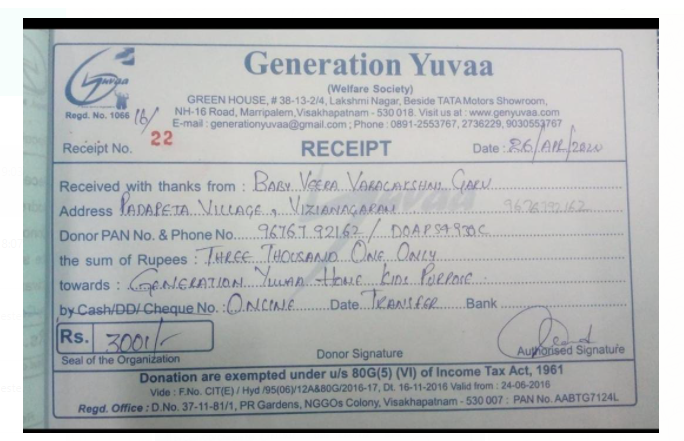 Yuvaa
Generation Yuvaa
(Welfare Society)
GREEN HOUSE, # 38-13-2/4, Lakshmi Nagar, Beside TATA Motors Showroom,
NH-16 Road, Marripalem, Visakhapatnam - 530 018. Visit us at : www.genyuvaa.com
E-mail : generationyuvaa@gmail.com ; Phone : 0891-2553767, 2736229, 9030553767
Regd. No. 1066 16/
Receipt No. 22 RECEIPT Date : 26/APR/2020
Received with thanks from : BABY VEERA VARALAKSHMI GARU
Address PADAPETA VILLAGE, VIZIANAGARAM 9676792162
Donor PAN No. & Phone No. 9676792162 /
the sum of Rupees : THREE THOUSAND ONE ONLY
towards : GENERATION YUVAA HOME KIDS PURPOSE
by Cash/DD/ Cheque No. : ONLINE Date TRANSFER Bank
Rs. 3001/-
Seal of the Organization Donor Signature Authorised Signature
Donation are exempted under u/s 80G(5) (VI) of Income Tax Act, 1961
Vide : F.No. CIT(E) / Hyd /95(06)/12A&80G/2016-17, Dt. 16-11-2016 Valid from : 24-06-2016
Regd. Office : D.No. 37-11-81/1, PR Gardens, NGGOs Colony, Visakhapatnam - 530 007 : PAN No. AABTG7124L